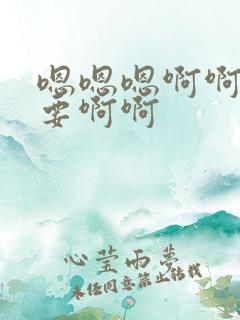 嗯嗯嗯啊啊
要啊啊
心莹雨梦
未经同意禁止转载